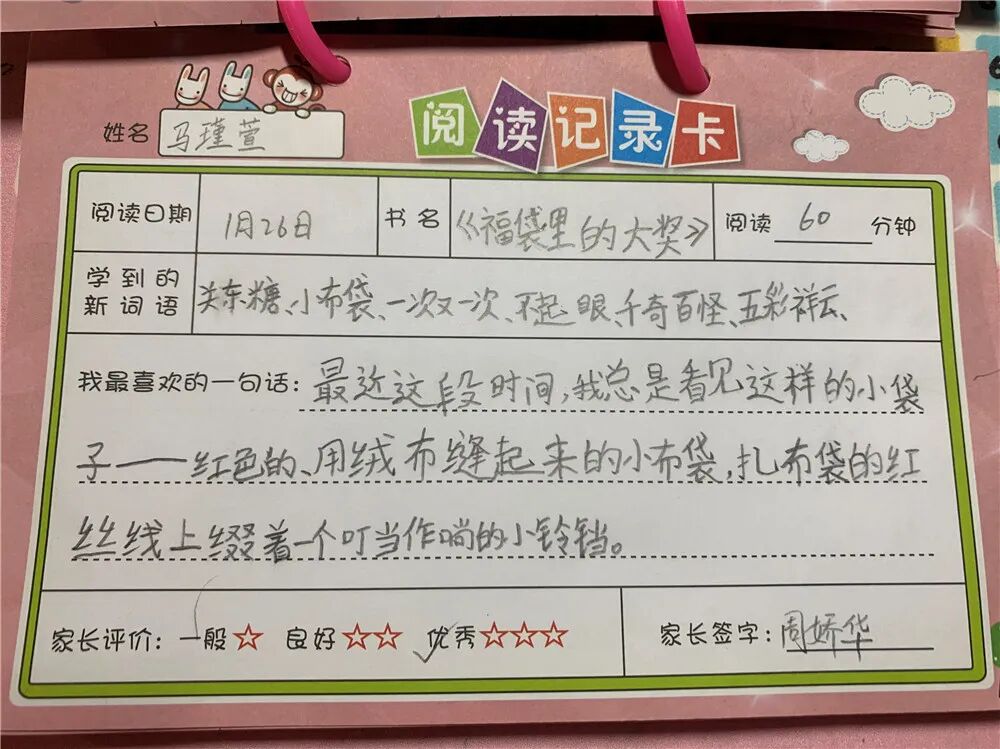 阅读记录卡
姓名 马瑾萱
阅读日期 1月26日 书名 《福袋里的大奖》 阅读 60 分钟
学到的新词语 关东糖、小布袋、一次又一次、不起眼、千奇百怪、五彩祥云、
我最喜欢的一句话：最近这段时间,我总是看见这样的小袋
子——红色的、用绒布缝起来的小布袋,扎布袋的红
丝线上缀着一个叮当作响的小铃铛。
家长评价：一般☆ 良好☆☆ 优秀☆☆☆ 家长签字：周娇华